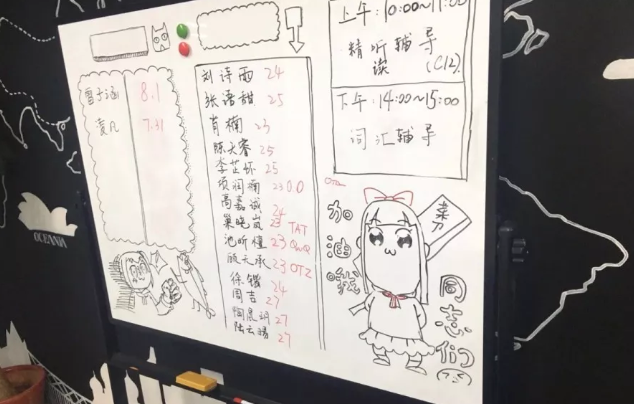 上午:10:00~11:00
精听辅导
读
(C12)
下午:14:00~15:00
词汇辅导
8.1
袁凡 7.31
刘诗雨 24
张语甜 25
肖楠 23
陈天睿 25
李芷怀 25
项润楠 23 O.O
高嘉诚 24
巢晓岚 23 TAT
池昕憧 23 QwQ
天承 23 OTZ
徐锴 24
周吉 27
27
陆云 27
加油哦
菜刀
同志们
OCEANIA